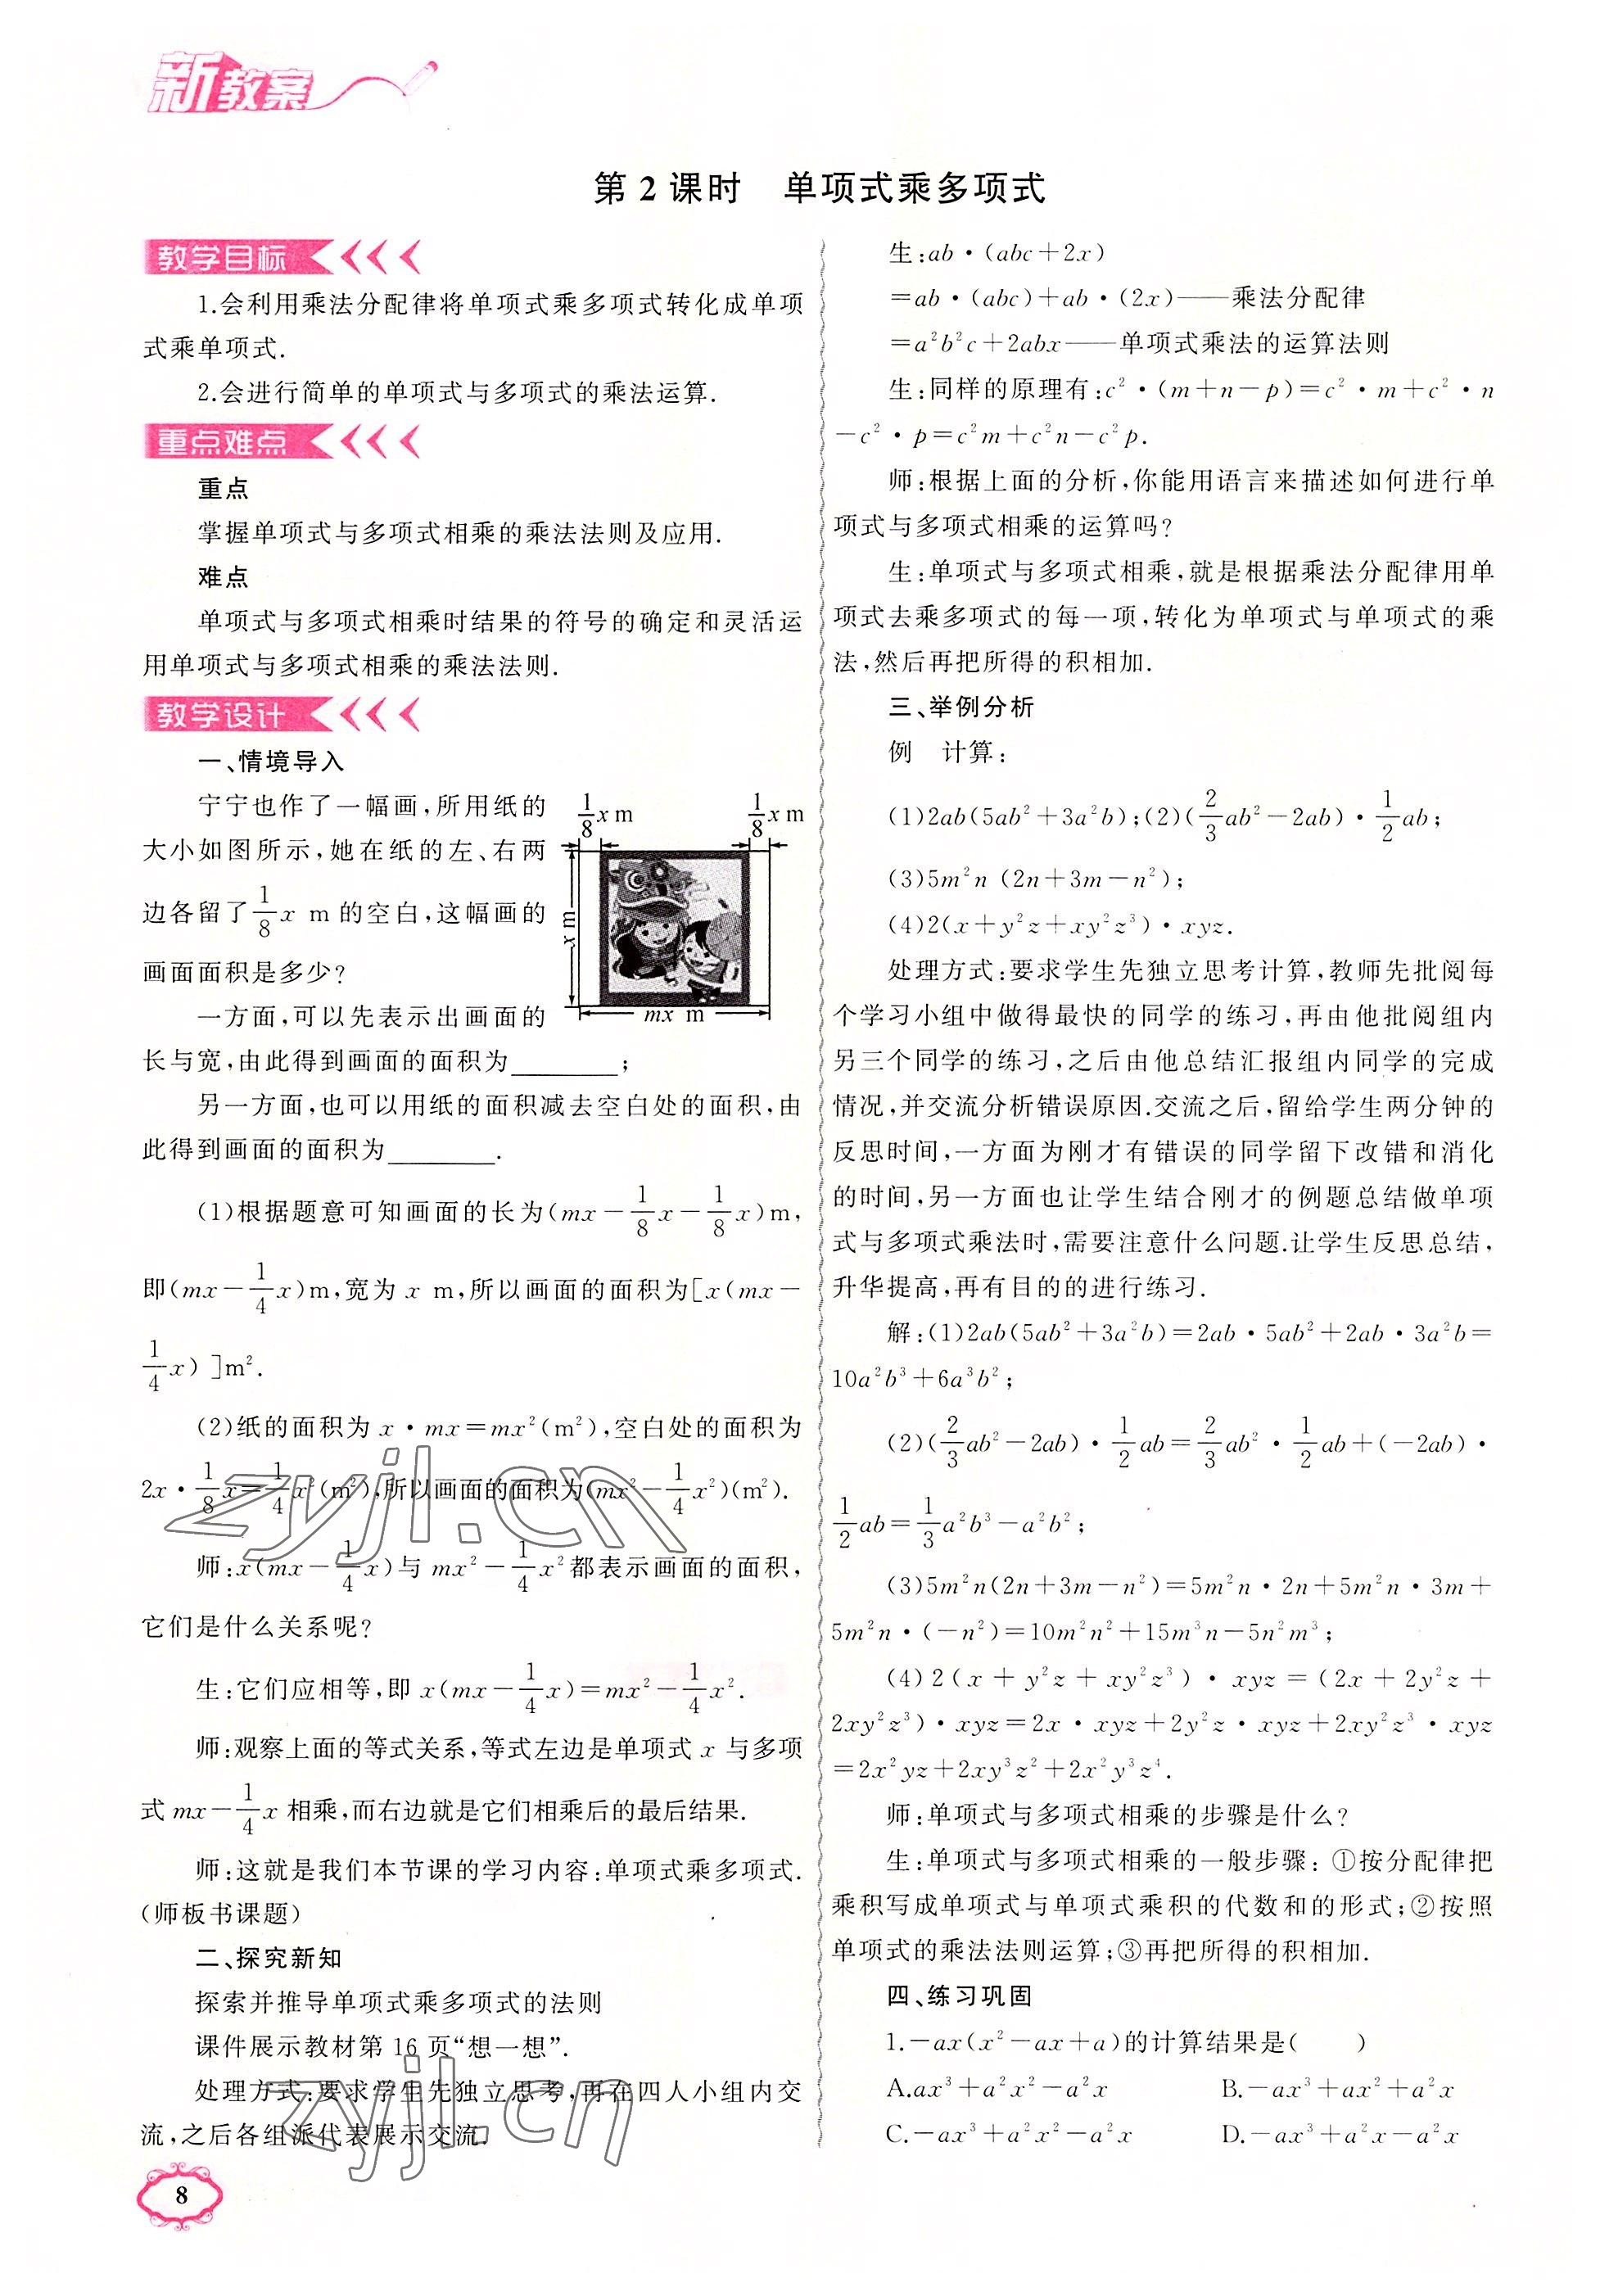 新教案
第 2 课时　单项式乘多项式
教学目标
1.会利用乘法分配律将单项式乘多项式转化成单项
式乘单项式.
2.会进行简单的单项式与多项式的乘法运算.
重点难点
重点
掌握单项式与多项式相乘的乘法法则及应用.
难点
单项式与多项式相乘时结果的符号的确定和灵活运
用单项式与多项式相乘的乘法法则.
教学设计
一、情境导入
宁宁也作了一幅画,所用纸的
大小如图所示,她在纸的左、右两
边各留了 1/8 x m 的空白,这幅画的
画面面积是多少?
1/8 x m
1/8 x m
x m
mx m
一方面,可以先表示出画面的
长与宽,由此得到画面的面积为________;
另一方面,也可以用纸的面积减去空白处的面积,由
此得到画面的面积为________.
(1)根据题意可知画面的长为(mx－1/8 x－1/8 x)m,
即(mx－1/4 x)m,宽为 x m,所以画面的面积为[x(mx－
1/4 x)]m².
(2)纸的面积为 x·mx＝mx²(m²),空白处的面积为
2x·1/8 x＝1/4 x²(m²),所以画面的面积为(mx²－1/4 x²)(m²).
师:x(mx－1/4 x)与 mx²－1/4 x²都表示画面的面积,
它们是什么关系呢?
生:它们应相等,即 x(mx－1/4 x)＝mx²－1/4 x².
师:观察上面的等式关系,等式左边是单项式 x 与多项
式 mx－1/4 x 相乘,而右边就是它们相乘后的最后结果.
师:这就是我们本节课的学习内容:单项式乘多项式.
(师板书课题)
二、探究新知
探索并推导单项式乘多项式的法则
课件展示教材第 16 页“想一想”.
处理方式:要求学生先独立思考,再在四人小组内交
流,之后各组派代表展示交流.
生:ab·(abc＋2x)
＝ab·(abc)＋ab·(2x)——乘法分配律
＝a²b²c＋2abx——单项式乘法的运算法则
生:同样的原理有:c²·(m＋n－p)＝c²·m＋c²·n
－c²·p＝c²m＋c²n－c²p.
师:根据上面的分析,你能用语言来描述如何进行单
项式与多项式相乘的运算吗?
生:单项式与多项式相乘,就是根据乘法分配律用单
项式去乘多项式的每一项,转化为单项式与单项式的乘
法,然后再把所得的积相加.
三、举例分析
例　计算:
(1)2ab(5ab²＋3a²b);(2)(2/3 ab²－2ab)·1/2 ab;
(3)5m²n (2n＋3m－n²);
(4)2(x＋y²z＋xy²z³)·xyz.
处理方式:要求学生先独立思考计算,教师先批阅每
个学习小组中做得最快的同学的练习,再由他批阅组内
另三个同学的练习,之后由他总结汇报组内同学的完成
情况,并交流分析错误原因.交流之后,留给学生两分钟的
反思时间,一方面为刚才有错误的同学留下改错和消化
的时间,另一方面也让学生结合刚才的例题总结做单项
式与多项式乘法时,需要注意什么问题.让学生反思总结,
升华提高,再有目的的进行练习.
解:(1)2ab(5ab²＋3a²b)＝2ab·5ab²＋2ab·3a²b＝
10a²b³＋6a³b²;
(2)(2/3 ab²－2ab)·1/2 ab＝2/3 ab²·1/2 ab＋(－2ab)·
1/2 ab＝1/3 a²b³－a²b²;
(3)5m²n(2n＋3m－n²)＝5m²n·2n＋5m²n·3m＋
5m²n·(－n²)＝10m²n²＋15m³n－5n²m³;
(4)2(x＋y²z＋xy²z³)·xyz＝(2x＋2y²z＋
2xy²z³)·xyz＝2x·xyz＋2y²z·xyz＋2xy²z³·xyz
＝2x²yz＋2xy³z²＋2x²y³z⁴.
师:单项式与多项式相乘的步骤是什么?
生:单项式与多项式相乘的一般步骤: ①按分配律把
乘积写成单项式与单项式乘积的代数和的形式;②按照
单项式的乘法法则运算;③再把所得的积相加.
四、练习巩固
1.－ax(x²－ax＋a)的计算结果是(　　)
A.ax³＋a²x²－a²x　　B.－ax³＋ax²＋a²x
C.－ax³＋a²x²－a²x　　D.－ax³＋a²x－a²x
8
zyjl.cn
zyjl.cn